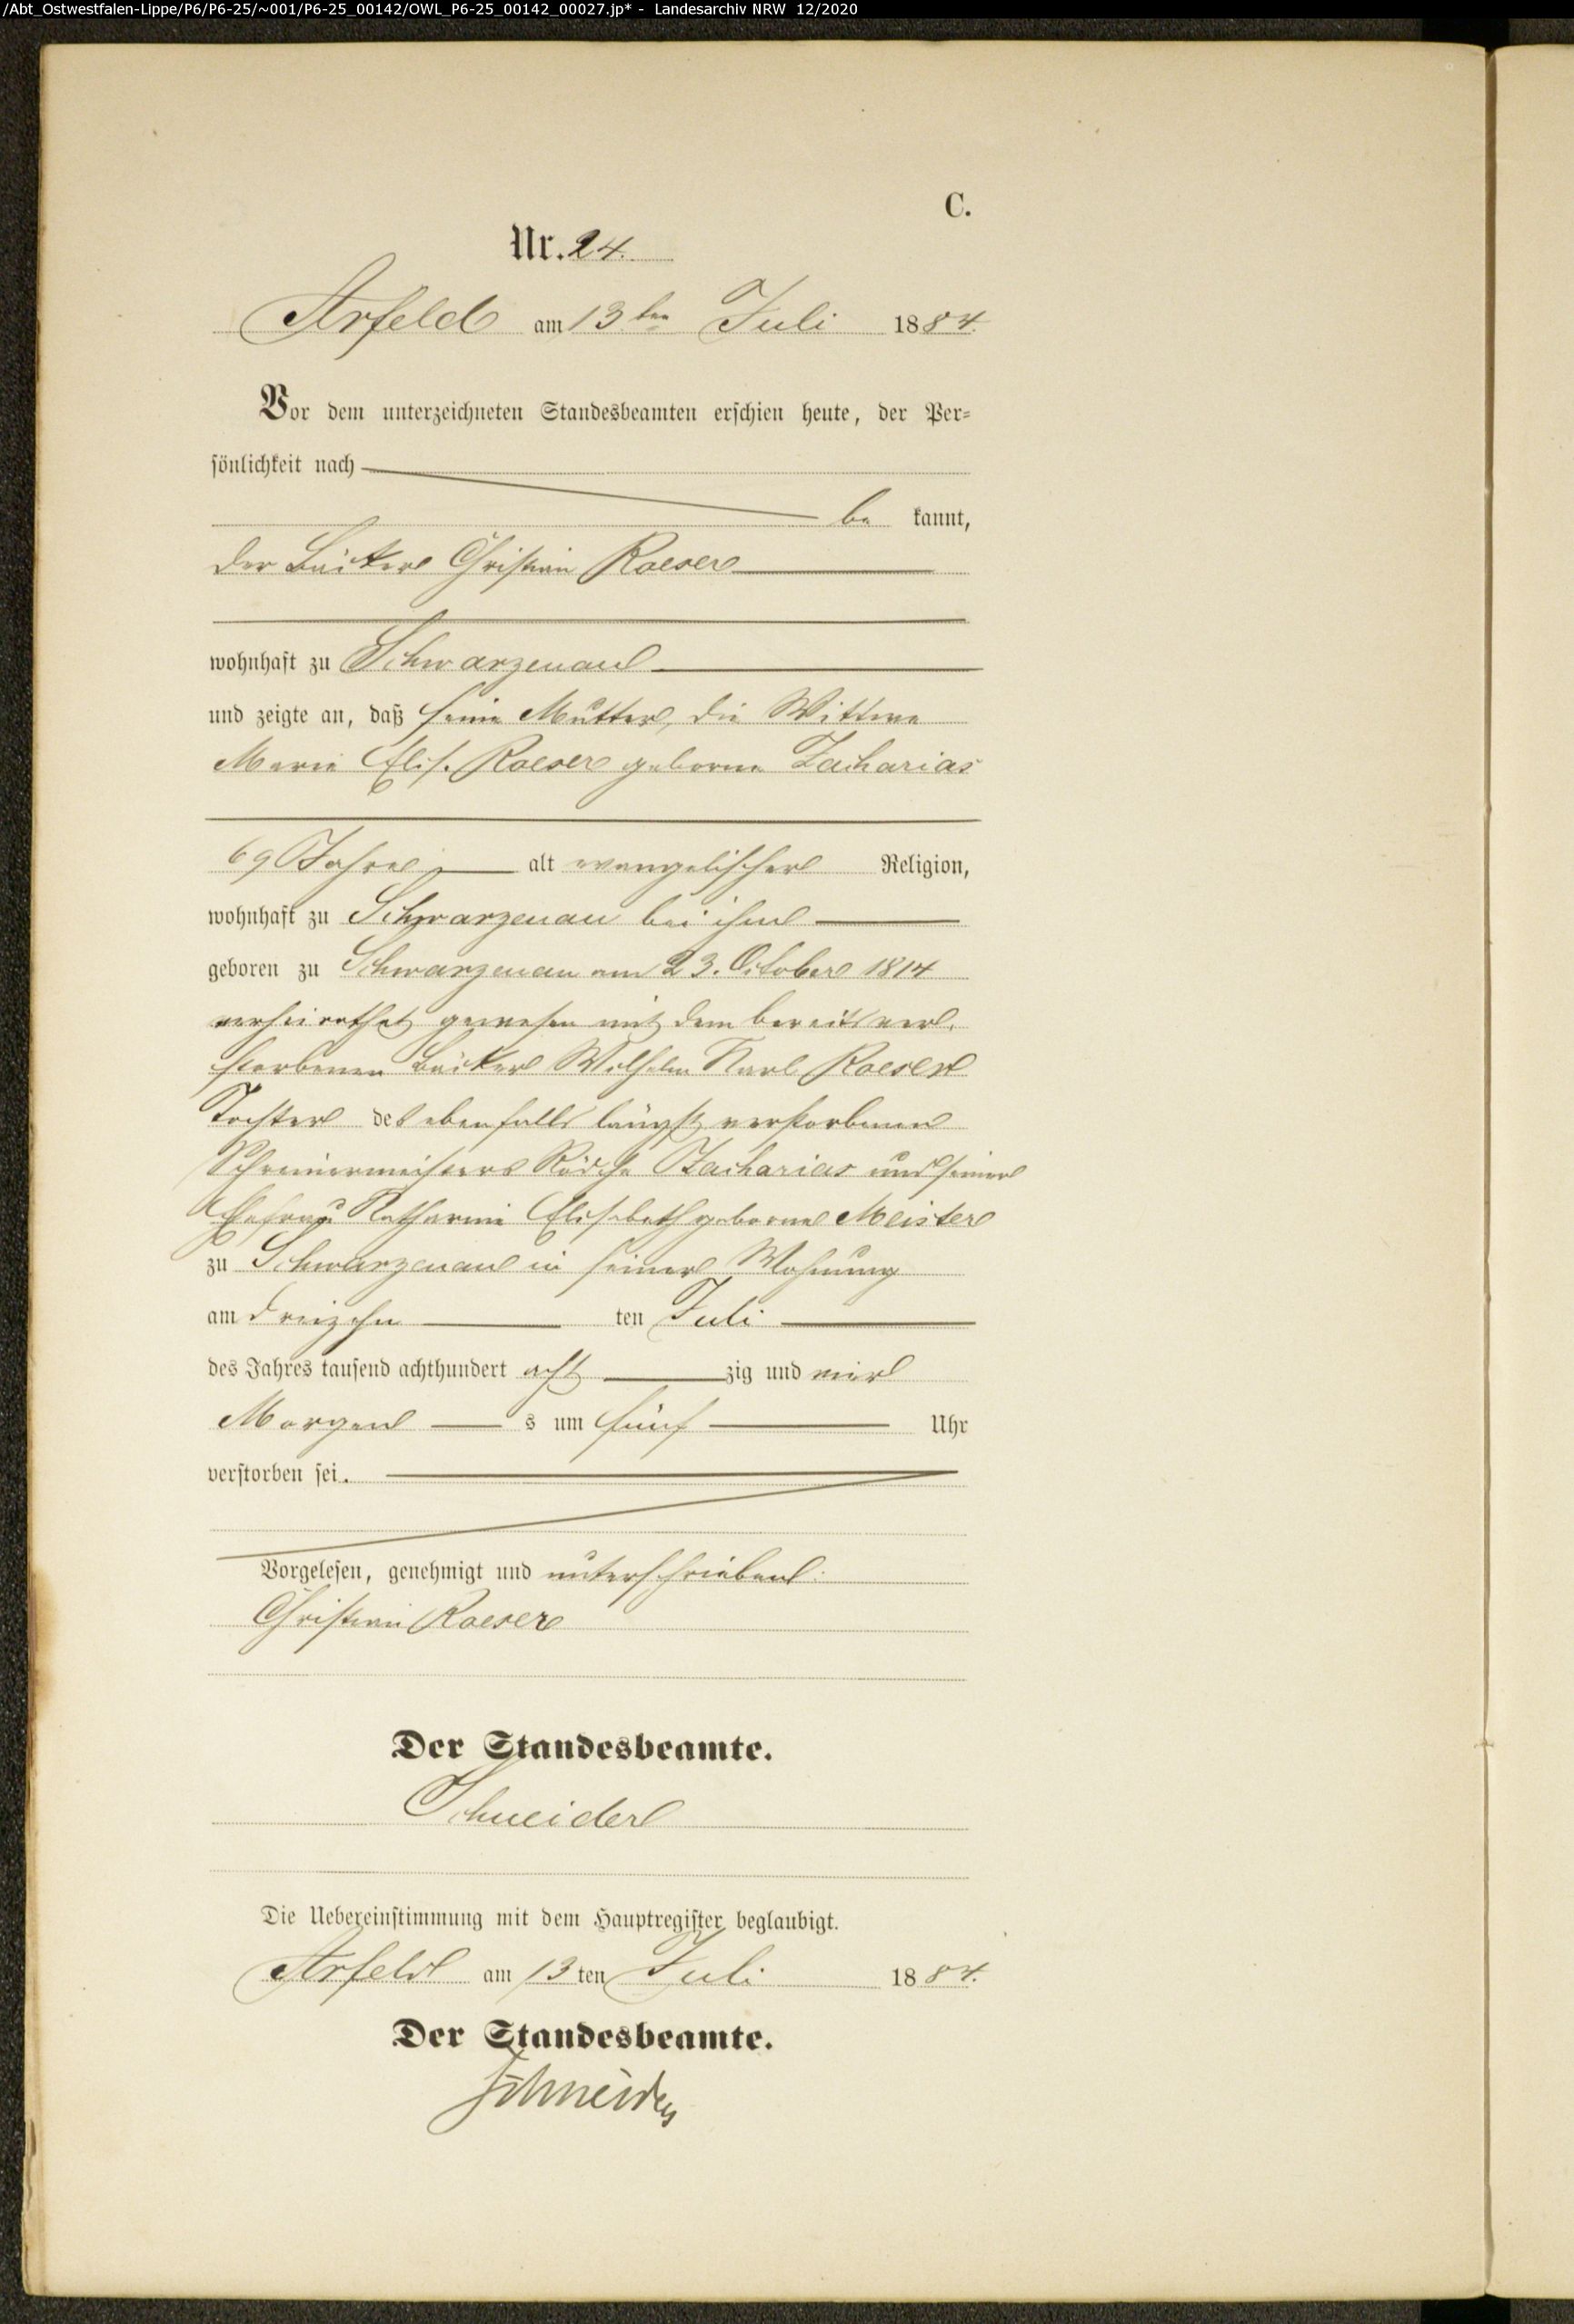 /Abt_Ostwestfalen-Lippe/P6/P6-25/~001/P6-25_00142/OWL_P6-25_00142_00027.jp* - Landesarchiv NRW 12/2020
C.
Nr. 24.
Arfeld am 13ten Juli 1884.
Vor dem unterzeichneten Standesbeamten erschien heute, der Per-
sönlichkeit nach
be kannt,
der Bäcker Christian Roeser
wohnhaft zu Schwarzenau
und zeigte an, daß seine Mutter, die Wittwe
Marie Elis. Roeser geborne Zacharias
69 Jahre alt evangelischer Religion,
wohnhaft zu Schwarzenau bei ihm
geboren zu Schwarzenau am 23. October 1814
verheirathet gewesen mit dem bereits ver-
storbenen Bäcker Wilhelm Karl Roeser
Tochter des ebenfalls längst verstorbenen
Schreinermeisters Zacharias und seiner
Ehefrau Katharine Elisabeth geborne Meister
zu Schwarzenau in seiner Wohnung
am dreizehn ten Juli
des Jahres tausend achthundert acht zig und vier
Morgen s um fünf Uhr
verstorben sei.
Vorgelesen, genehmigt und unterschrieben.
Christian Roeser
Der Standesbeamte.
Schneider
Die Uebereinstimmung mit dem Hauptregister beglaubigt.
Arfeld am 13 ten Juli 1884.
Der Standesbeamte.
Schneider